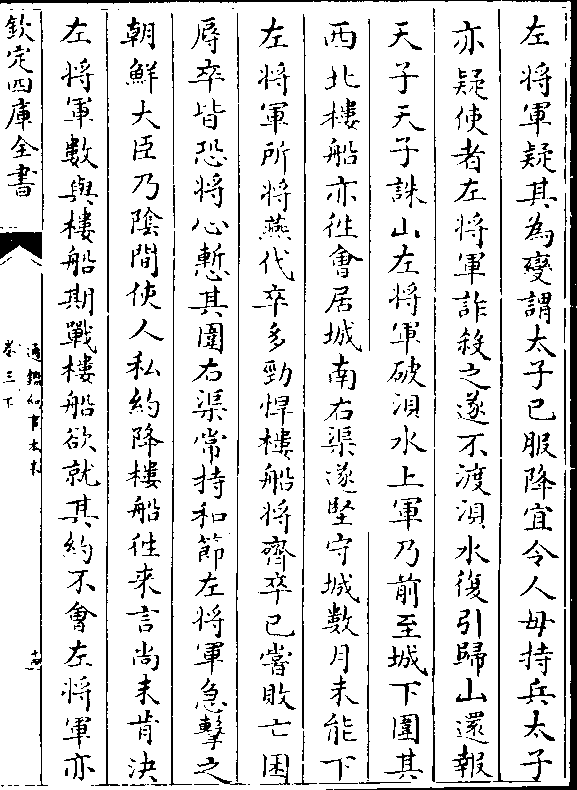 左將軍疑其為變謂太子已服降宜令人毋持兵太子
亦疑使者左將軍詐殺之遂不渡浿水復引歸山還報
天子天子誅山左將軍破浿水上軍乃前至城下圍其
西北樓船亦徃會居城南右渠遂堅守城數月未能下
左將軍所將燕代卒多勁悍樓船將齊卒已嘗敗亡困
辱卒皆恐將心慙其圍右渠常持和節左將軍急擊之
朝鮮大臣乃陰間使人私約降樓船徃來言尚未肯決
左將軍數與樓船期戰樓船欲就其約不會左將軍亦
欽定四庫全書
通鑑紀事本末
卷三下